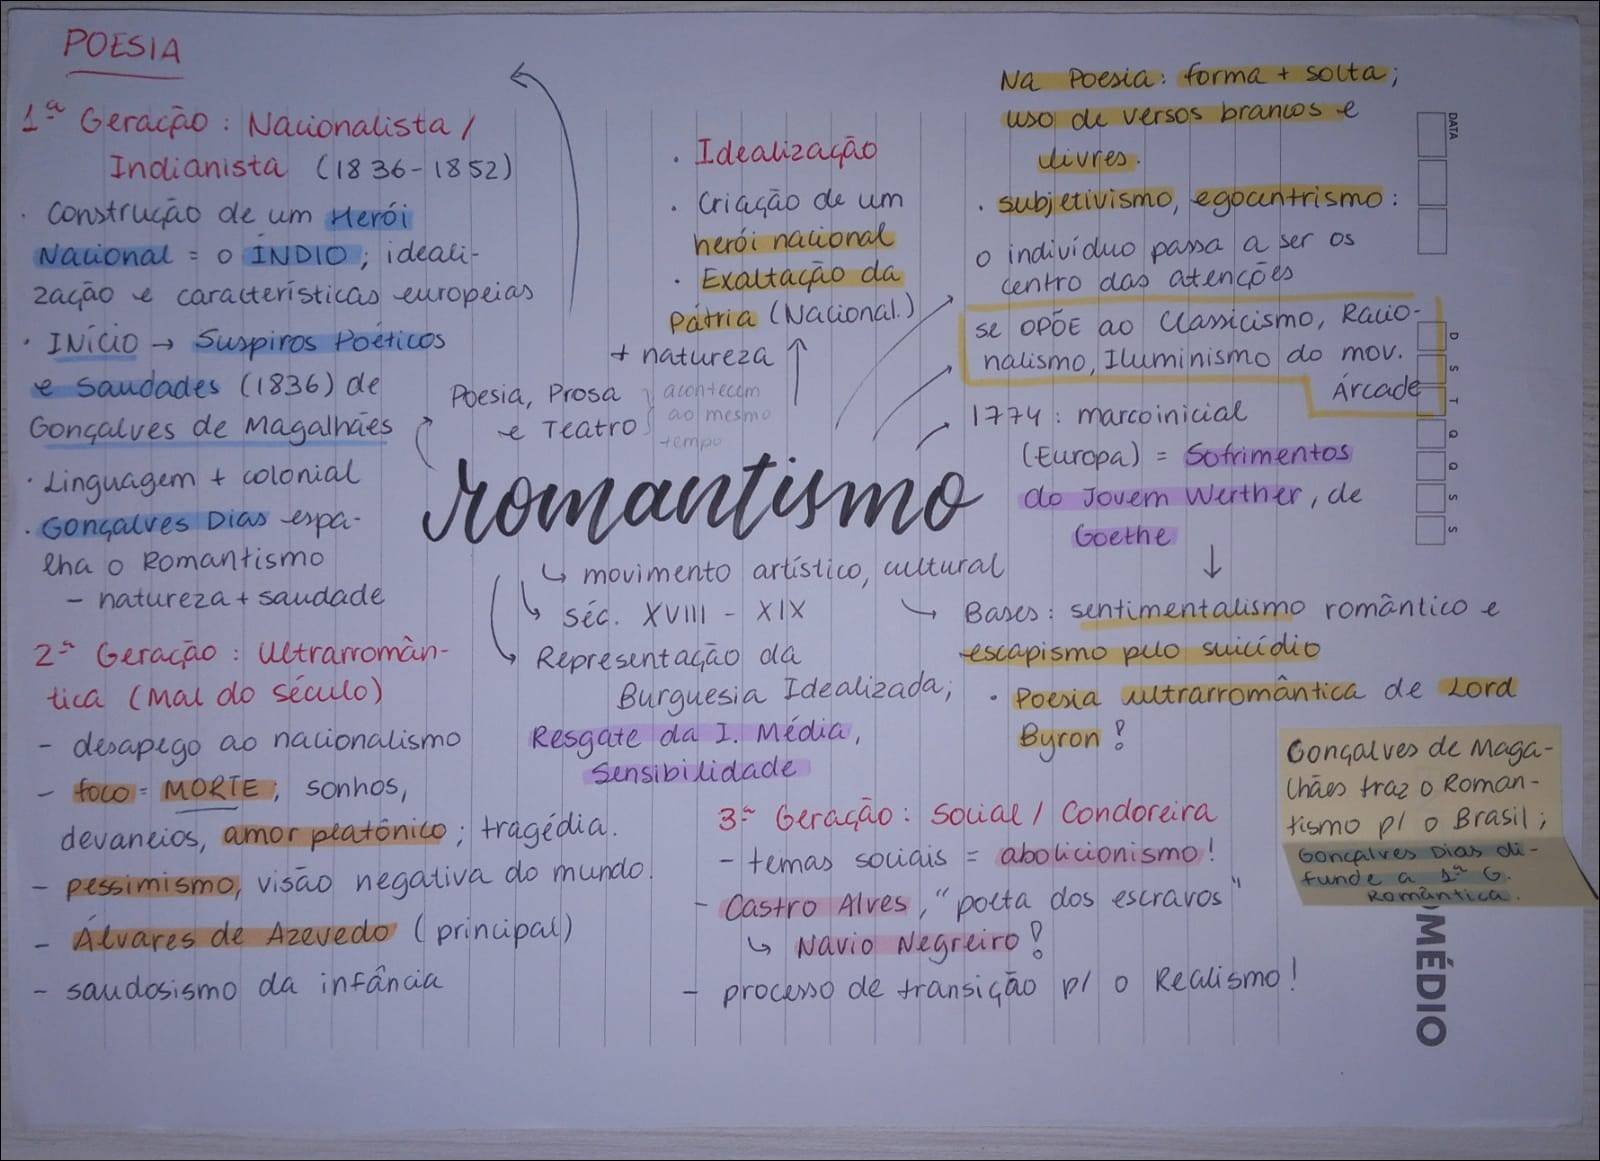 POESIA
1ª Geração: Nacionalista /
Indianista (1836-1852)
· Construção de um Herói
Nacional = o ÍNDIO; ideali-
zação e características europeias
· INÍCIO → Suspiros Poéticos
e Saudades (1836) de
Gonçalves de Magalhães
· Linguagem + colonial
· Gonçalves Dias espa-
lha o Romantismo
- natureza + saudade
2ª Geração: Ultrarromân-
tica (Mal do Século)
- desapego ao nacionalismo
- foco = MORTE; sonhos,
devaneios, amor platônico; tragédia.
- pessimismo, visão negativa do mundo.
- Álvares de Azevedo (principal)
- saudosismo da infância
· Idealização
· Criação de um
herói nacional
· Exaltação da
Pátria (Nacional.)
+ natureza
Poesia, Prosa
e Teatro
acontecem
ao mesmo
tempo
romantismo
↳ movimento artístico, cultural
↳ Séc. XVIII - XIX
↳ Representação da
Burguesia Idealizada;
Resgate da I. Média,
Sensibilidade
3ª Geração: Social / Condoreira
- temas sociais = abolicionismo!
- Castro Alves, "poeta dos escravos"
↳ Navio Negreiro!
- processo de transição p/ o Realismo!
Na Poesia: forma + solta;
uso de versos brancos e
livres.
· subjetivismo, egocentrismo:
o indivíduo passa a ser os
centro das atenções
se OPÕE ao Classicismo, Racio-
nalismo, Iluminismo do mov.
Árcade
1774: marco inicial
(Europa) = Sofrimentos
do Jovem Werther, de
Goethe
↓
→ Bases: sentimentalismo romântico e
escapismo pelo suicídio
· Poesia ultrarromântica de Lord
Byron!
Gonçalves de Maga-
lhães traz o Roman-
tismo p/ o Brasil;
Gonçalves Dias di-
funde a 1ª G.
Romântica.
DATA
D
S
T
Q
Q
S
S
MÉDIO